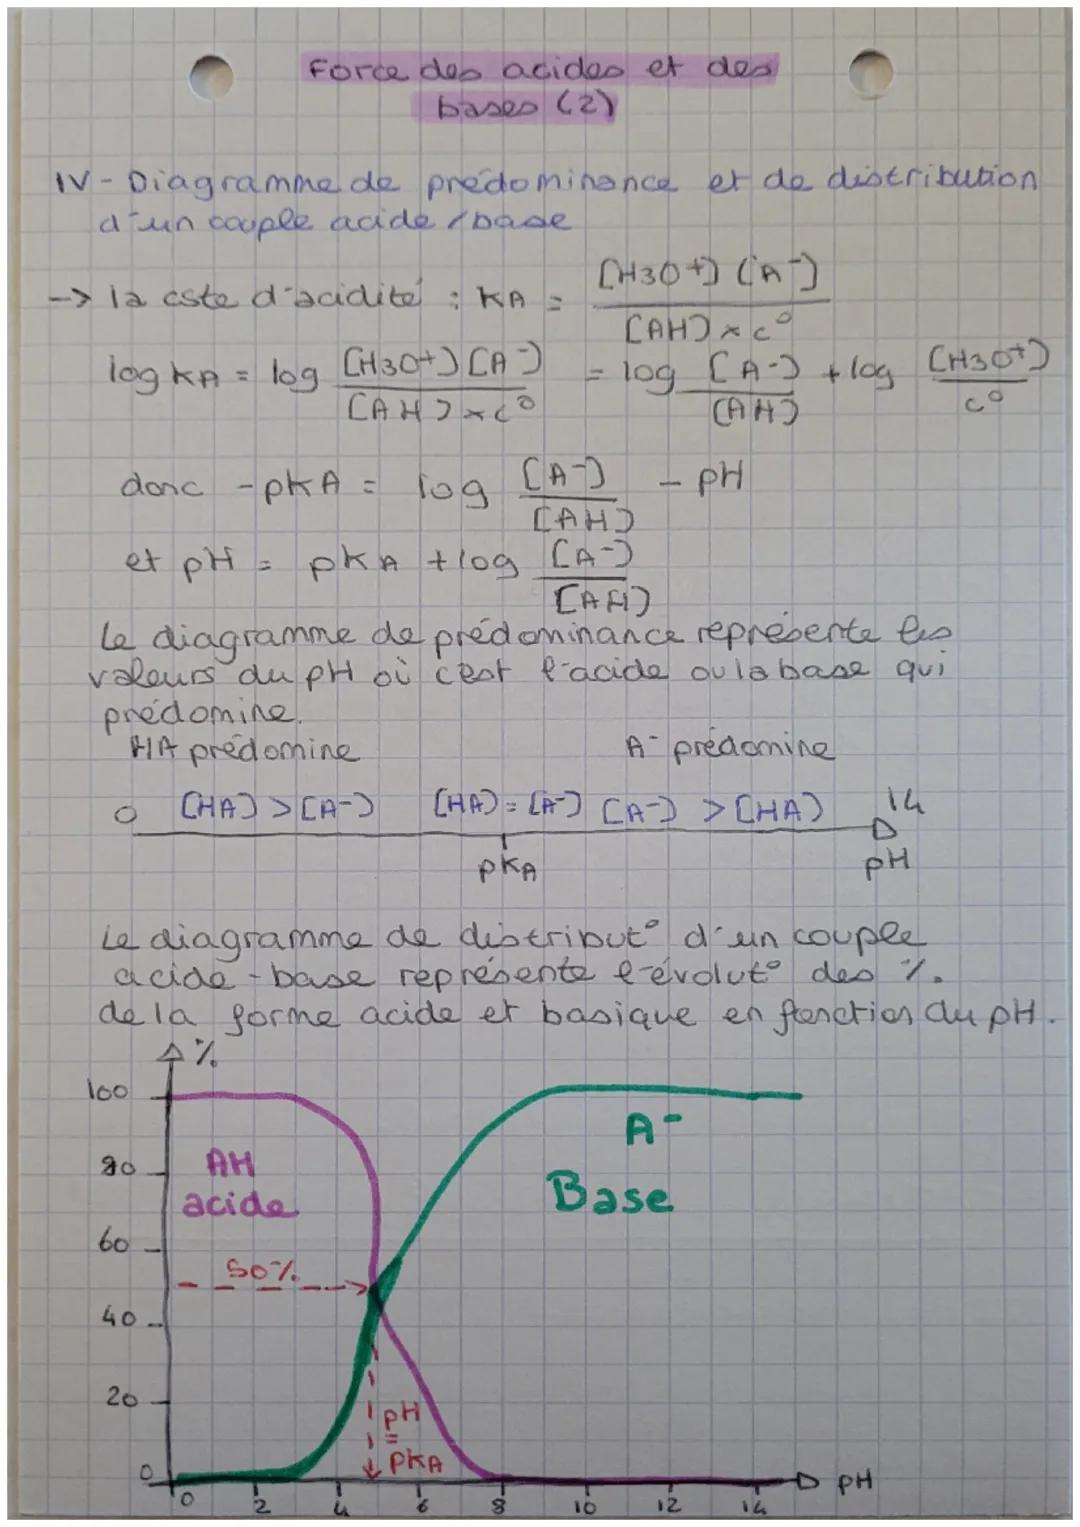 Force des acides et des
bases (2)
IV - Diagramme de prédominance et de distribution
d'un couple acide / base
--> la cste d'acidité : KA = [H3O+] [A-] / [AH] × c°
log KA = log [H3O+] [A-] / [AH] × c° = log [A-] / [AH] + log [H3O+] / c°
donc - pKA = log [A-] / [AH] - pH
et pH = pKA + log [A-] / [AH]
Le diagramme de prédominance représente les
valeurs du pH où c'est l'acide ou la base qui
prédomine.
HA prédomine A- prédomine
0 [HA] > [A-] [HA] = [A-] [A-] > [HA] 14
pKA pH
Le diagramme de distribut° d'un couple
acide - base représente l'évolut° des %.
de la forme acide et basique en fonction du pH.
%
100
A-
80 AH
acide Base
60
50%
40
20
pH
=
pKA
0
0 2 4 6 8 10 12 14 pH